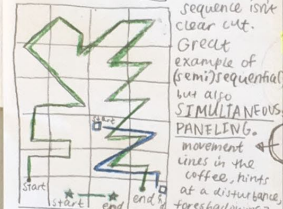 sequence isn't
clear cut.
Great
example of
(semi)sequential
but also
SIMULTANEOUS
PANELING.
movement
lines in the
coffee, hints
at a disturbance,
start
start
start end
end